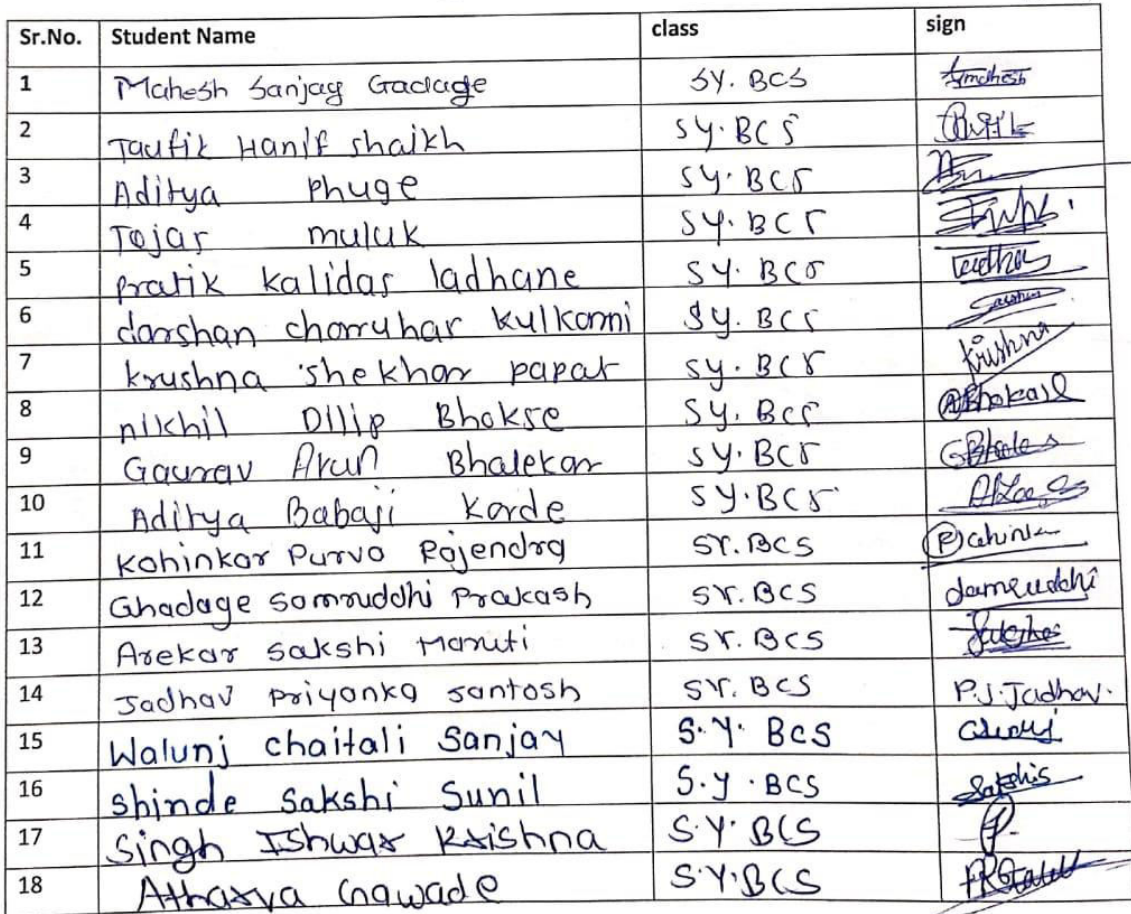 Sr.No. Student Name class sign
1 Mahesh Sanjay Gadage SY. BCS
2 Taufik Hanif shaikh SY. BCS
3 Aditya Phuge SY. BCS
4 Tejas muluk SY. BCS
5 pratik kalidas ladhane SY. BCS
6 darshan kulkarni SY. BCS
7 krushna shekhar papat SY. BCS krishna
8 nikhil Dilip Bhokse SY. BCS
9 Gaurav Arun Bhalekar SY. BCS
10 Aditya Babaji Karde SY. BCS
11 Kahinkar Purva Rajendra SY. BCS
12 Ghadage Samruddhi Prakash SY. BCS Samruddhi
13 Arekar Sakshi Maruti SY. BCS
14 Jadhav Priyanka Santosh SY. BCS P.J.Jadhav.
15 Walunj chaitali Sanjay S.Y. BCS
16 Shinde Sakshi Sunil S.Y. BCS
17 Singh Ishwar Krishna S.Y. BCS
18 Atharva Gawade S.Y.BCS